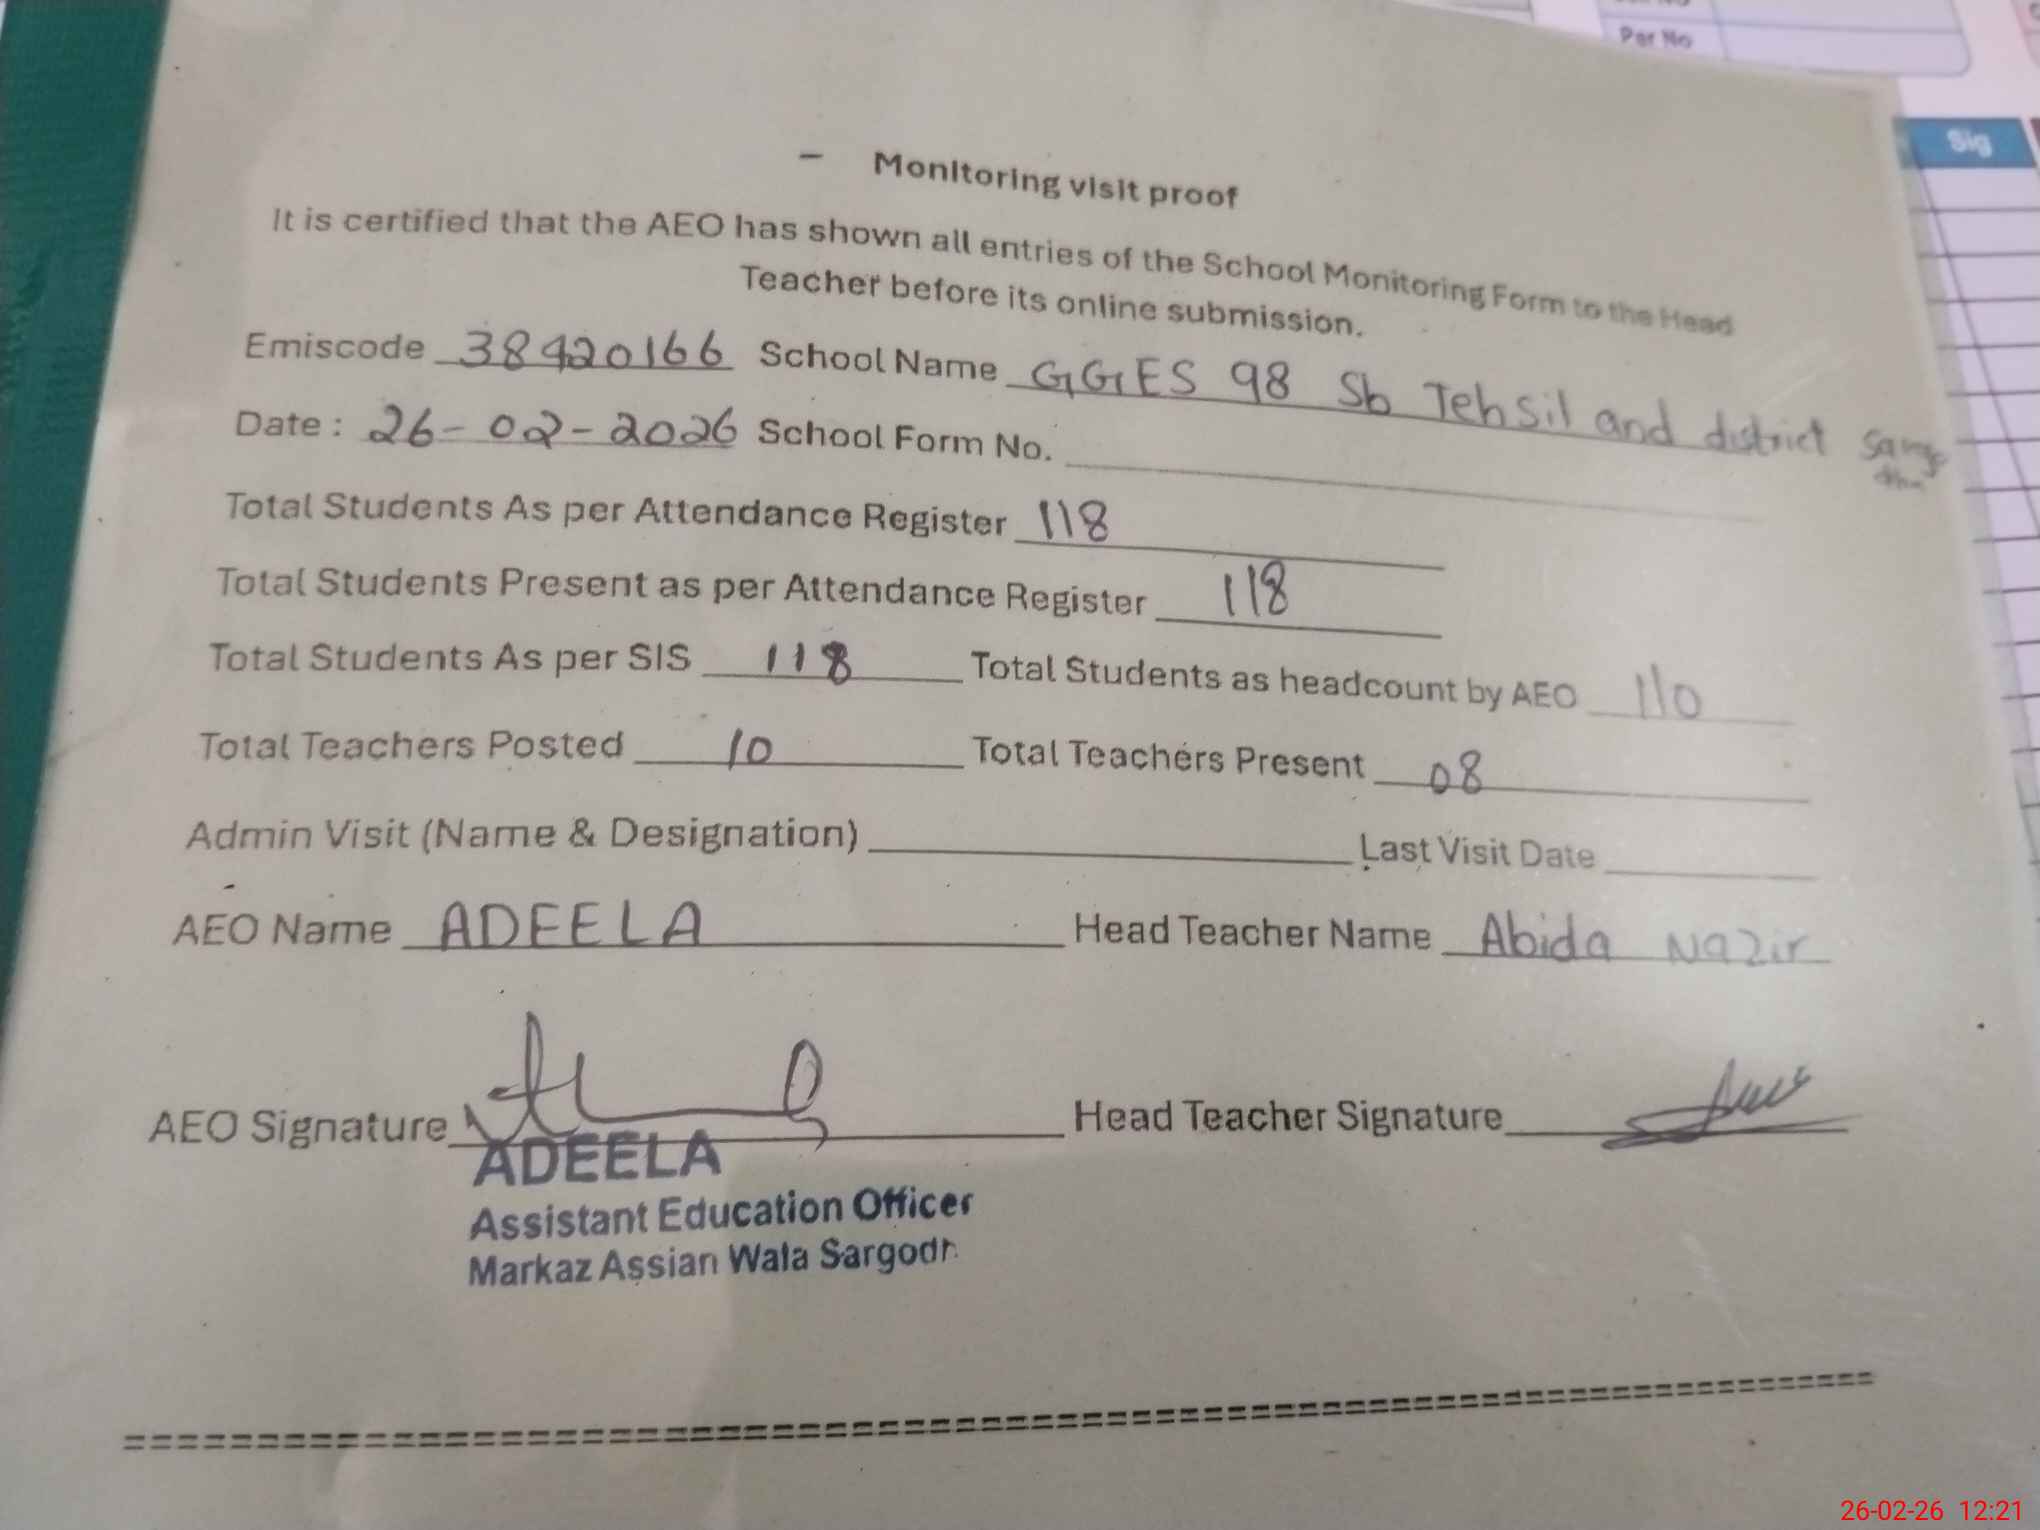 Per No
Sig
– Monitoring visit proof
It is certified that the AEO has shown all entries of the School Monitoring Form to the Head
Teacher before its online submission.
Emiscode 38420166 School Name GGES 98 Sb Tehsil and district
Date : 26-02-2026 School Form No.
Total Students As per Attendance Register 118
Total Students Present as per Attendance Register 118
Total Students As per SIS 118 Total Students as headcount by AEO 110
Total Teachers Posted 10 Total Teachers Present 08
Admin Visit (Name & Designation) Last Visit Date
AEO Name ADEELA Head Teacher Name Abida Nazir
AEO Signature Head Teacher Signature
ADEELA
Assistant Education Officer
Markaz Assian Wala Sargodh
================================================================
26-02-26 12:21